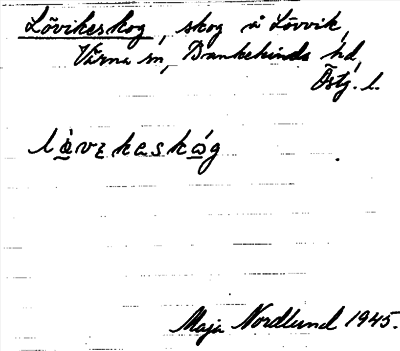 Lövikeskog, skog å Lövvik,
Värna sn, Bankekinds hd,
Östg. l.
lö̀vɛkaskóg
Maja Nordlund 1945.